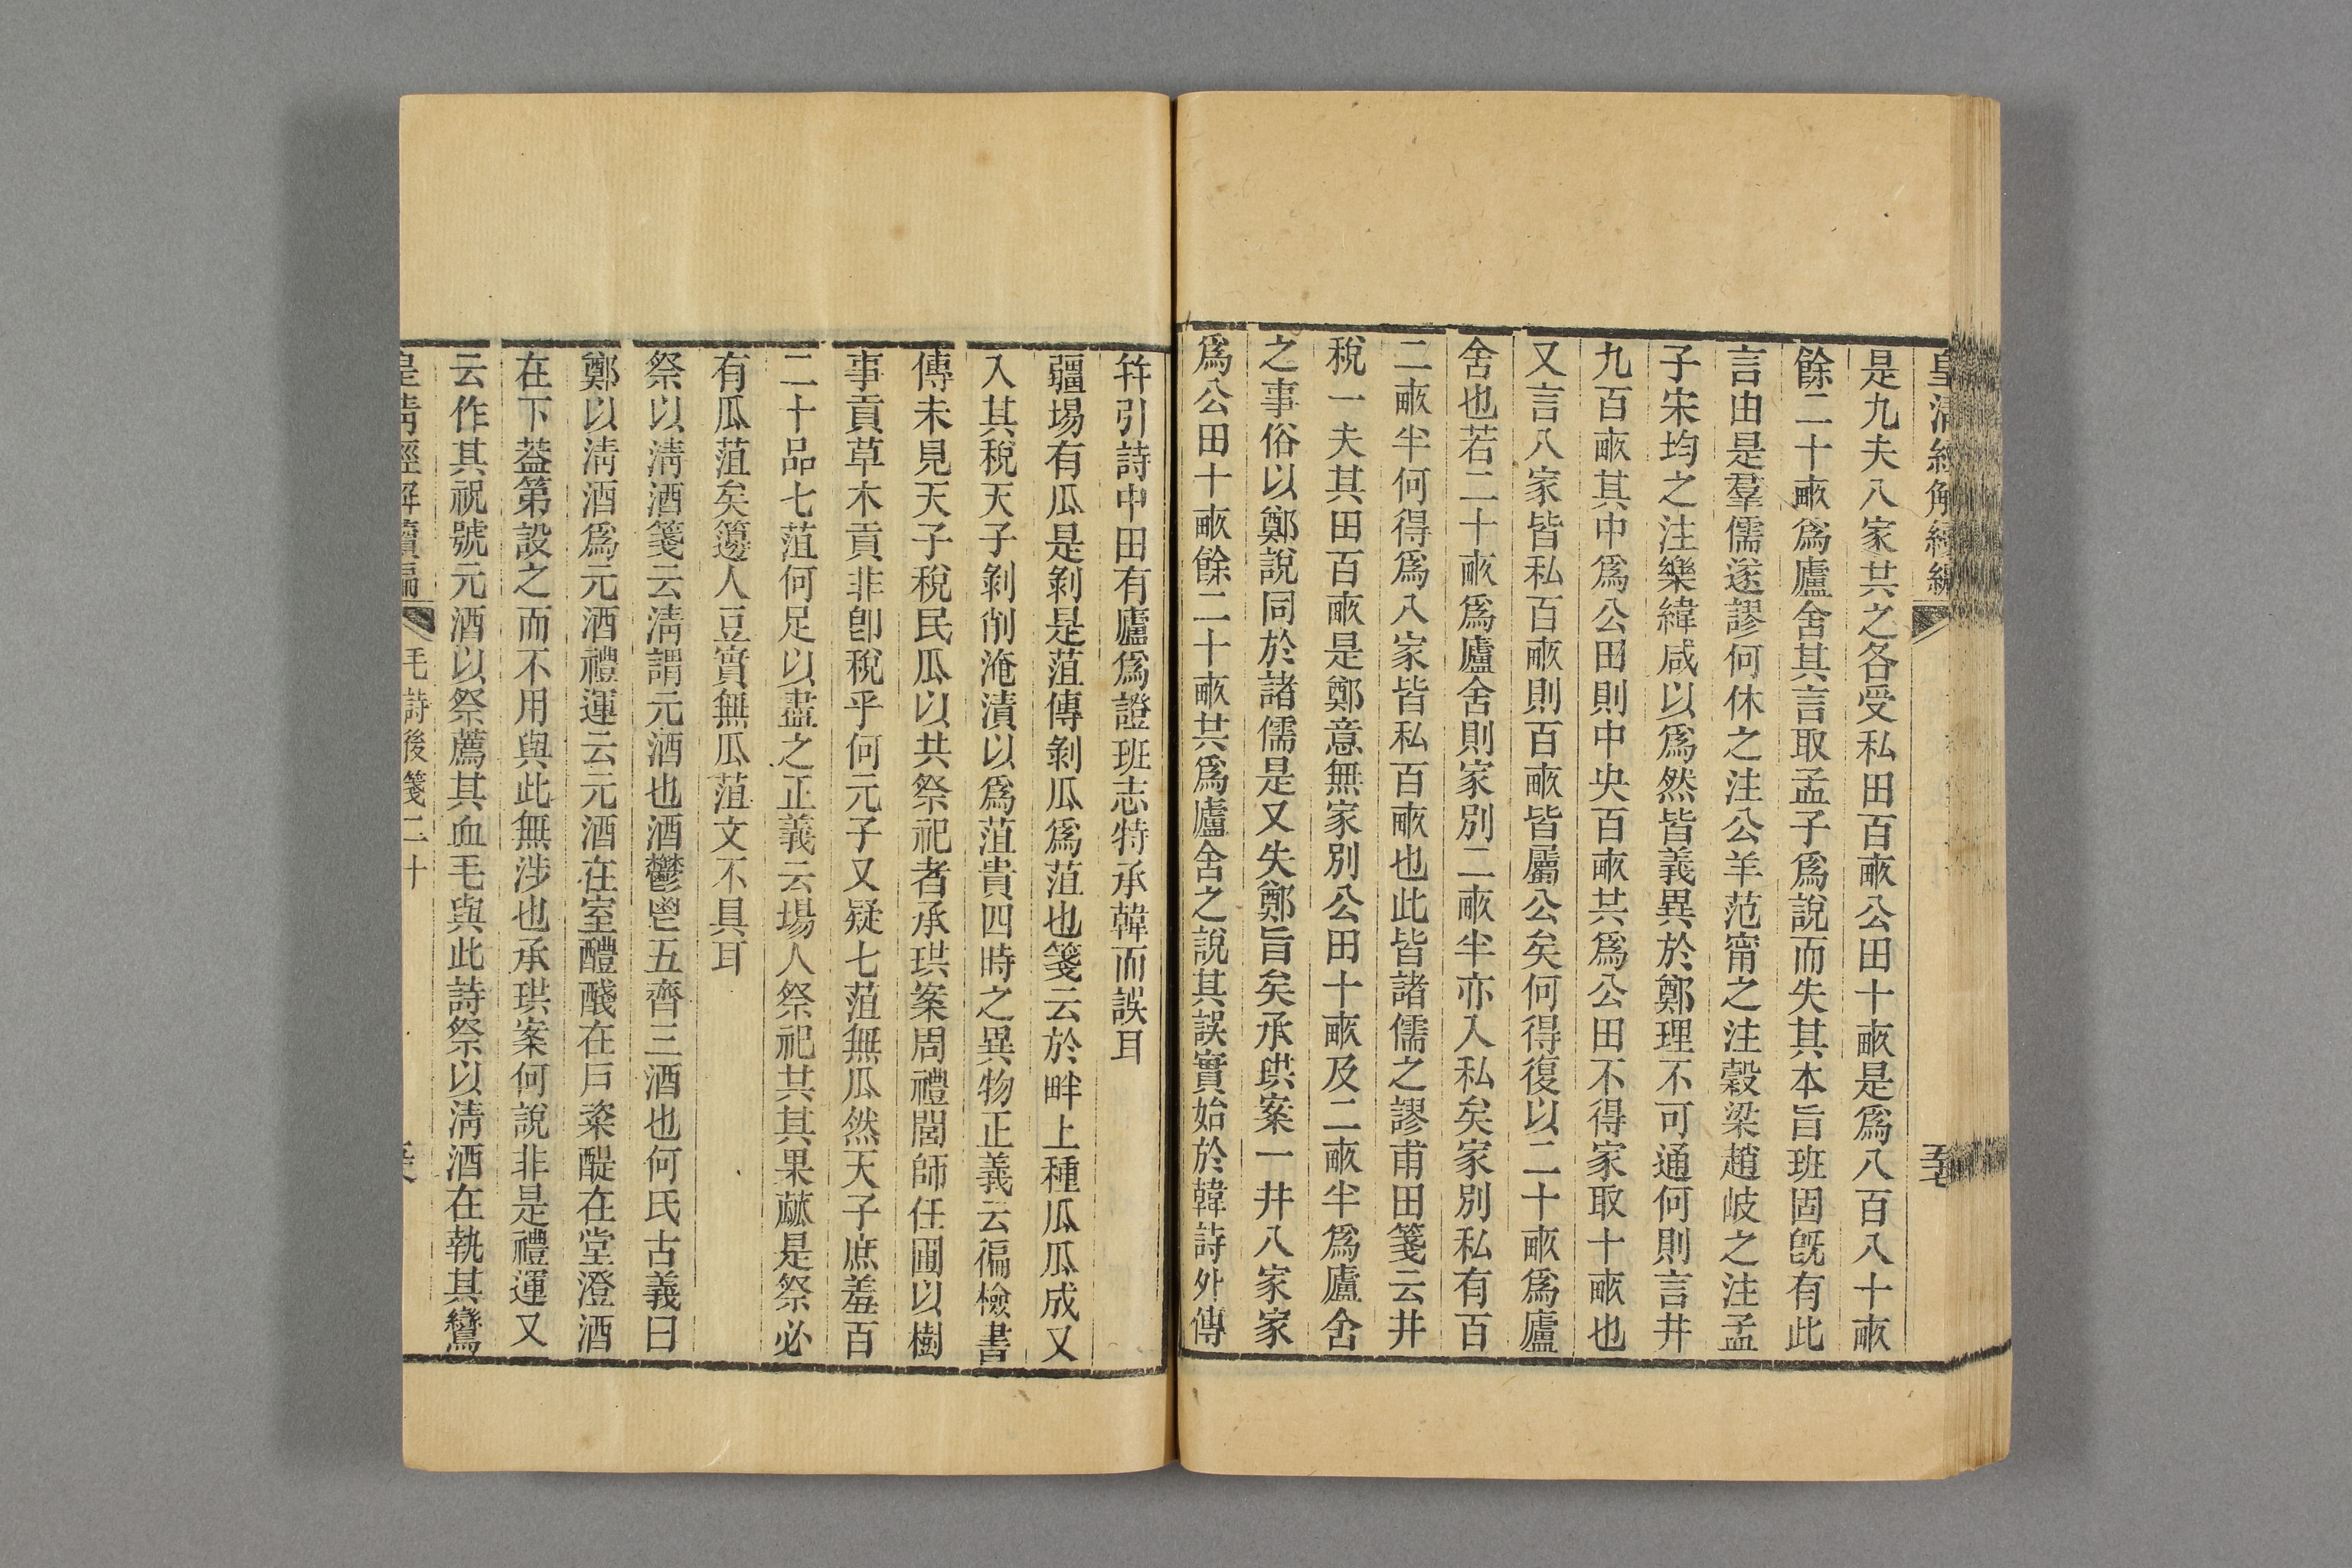 皇清經解續編
是九夫八家共之各受私田百畝公田十畝是爲八百八十畝
餘二十畝爲廬舍其言取孟子爲說而失其本旨班固旣有此
言由是羣儒遂謬何休之注公羊范甯之注穀梁趙岐之注孟
子宋均之注樂緯咸以爲然皆義異於鄭理不可通何則言井
九百畝其中爲公田則中央百畝共爲公田不得家取十畝也
又言八家皆私百畝則百畝皆屬公矣何得復以二十畝爲廬
舍也若二十畝爲廬舍則家別二畝半亦入私矣家別私有百
二畝半何得爲八家皆私百畝也此皆諸儒之謬甫田箋云井
稅一夫其田百畝是鄭意無家別公田十畝及二畝半爲廬舍
之事俗以鄭說同於諸儒是又失鄭旨矣承珙案一井八家家
爲公田十畝餘二十畝共爲廬舍之說其誤實始於韓詩外傳
幷引詩中田有廬爲證班志特承韓而誤耳
疆場有瓜是剝是菹傳剝瓜爲菹也箋云於畔上種瓜瓜成又
入其稅天子剝削淹漬以爲菹貴四時之異物正義云徧檢書
傳未見天子稅民瓜以共祭祀者承珙案周禮閭師任圃以樹
事貢草木貢非卽稅乎何元子又疑七菹無瓜然天子庶羞百
二十品七菹何足以盡之正義云場人祭祀共其果蓏是祭必
有瓜菹矣籩人豆實無瓜菹文不具耳
祭以淸酒箋云淸謂元酒也酒鬱鬯五齊三酒也何氏古義曰
鄭以淸酒爲元酒禮運云元酒在室醴醆在戶粢醍在堂澄酒
在下葢第設之而不用與此無涉也承珙案何說非是禮運又
云作其祝號元酒以祭薦其血毛與此詩祭以淸酒在執其鸞
皇淸經解續編 毛詩後箋二十